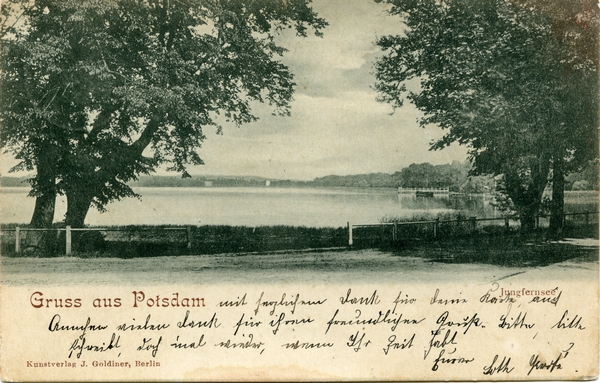 Jungfernsee
Gruss aus Potsdam mit herzlichem Dank für Deine Karte und
Annchen vielen Dank für ihren freundlichen Gruß. Bitte, bitte
schreibt, doch mal wieder, wenn Ihr Zeit habt
Eurer
Kunstverlag J. Goldiner, Berlin